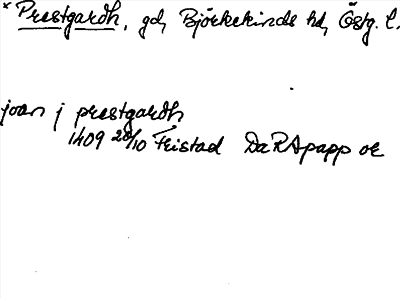 * Prestgardh, gd, Björkekinds hd, Östg. l.
joan j prestgardh
1409 28/10 Fristad DaRApapp or